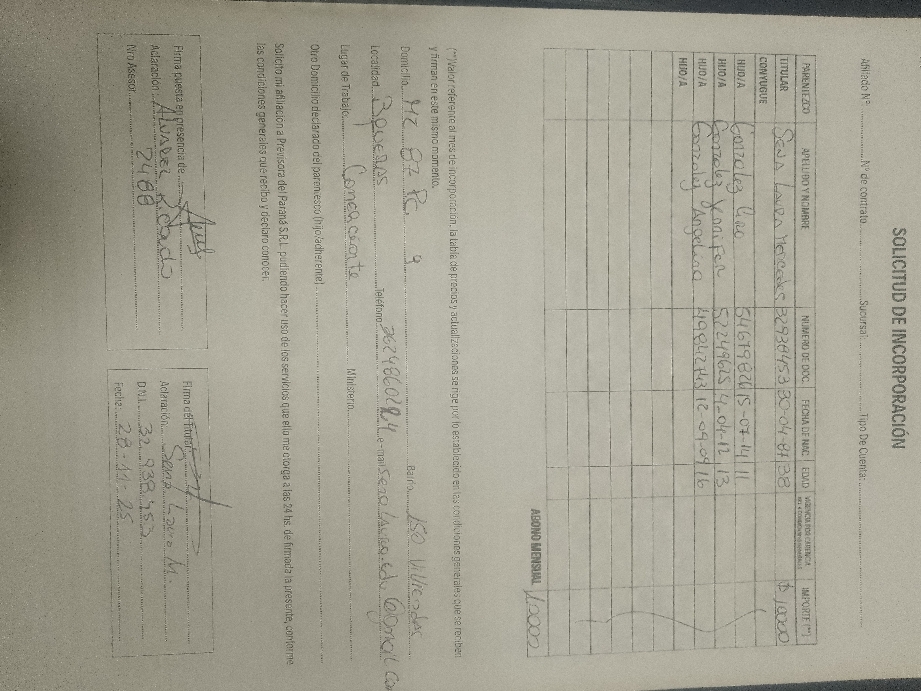 SOLICITUD DE INCORPORACIÓN
Afiliado N°: N° de contrato Sucursal: Tipo De Cuenta:
PARENTEZCO APELLIDO Y NOMBRE NUMERO DE DOC. FECHA DE NAC. EDAD VIGENCIA POR CARENCIA IMPORTE (**)
TITULAR Sena Laura Mercedes 32938453 30-04-87 38 $ 10000
CONYUGUE
HIJO/A Gonzalez Lino 54679826 15-07-14 11
HIJO/A Gonzalez Yenifer 52249625 4-04-12 13
HIJO/A Gonzalez Angelina 49842743 12-09-09 16
HIJO/A
ABONO MENSUAL 10000
(**)Valor referente al mes de incorporación, la tabla de precios y actualizaciones se rige por lo establecido en las condiciones generales que se reciben
y firman en este mismo momento.
Domicilio Mz 87 Pc 9 Barrio 150 Viviendas
Localidad Teléfono e-mail
Lugar de Trabajo: Ministerio
Otro Domicilio declarado del parentesco (hijo/adherente)
Solicito mi afiliación a Previsora del Paraná S.R.L. pudiendo hacer uso de los servicios que ello me otorga a las 24 hs. de firmada la presente, conforme
las condiciones generales que recibo y declaro conocer.
Firma puesta en presencia de
Aclaración: Ricardo
Nro Asesor 2488
Firma del Titular:
Aclaración: Sena Laura M.
D.N.I. 32.938.453
Fecha: 28-11-25